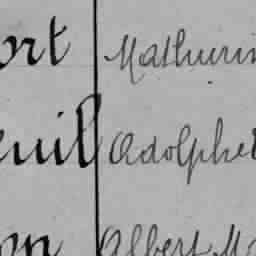 ort Mathurin
euil Adolphe
on Albert Ma